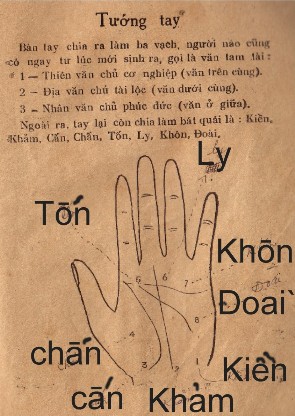 Tướng tay
Bàn tay chia ra làm ba vạch, người nào cũng
có ngay từ lúc mới sinh ra, gọi là văn tam tài :
1 — Thiên văn chủ cơ nghiệp (văn trên cùng).
2 — Địa văn chủ tài lộc (văn dưới cùng).
3 — Nhân văn chủ phúc đức (văn ở giữa).
Ngoài ra, tay lại còn chia làm bát quái là : Kiền,
Khảm, Cấn, Chấn, Tốn, Ly, Khôn, Đoài.
Ly
Tốn
Khôn
5
6
7
Đoài
Đoài
8
chấn
4
3
2
1
Kiền
cấn
Khảm